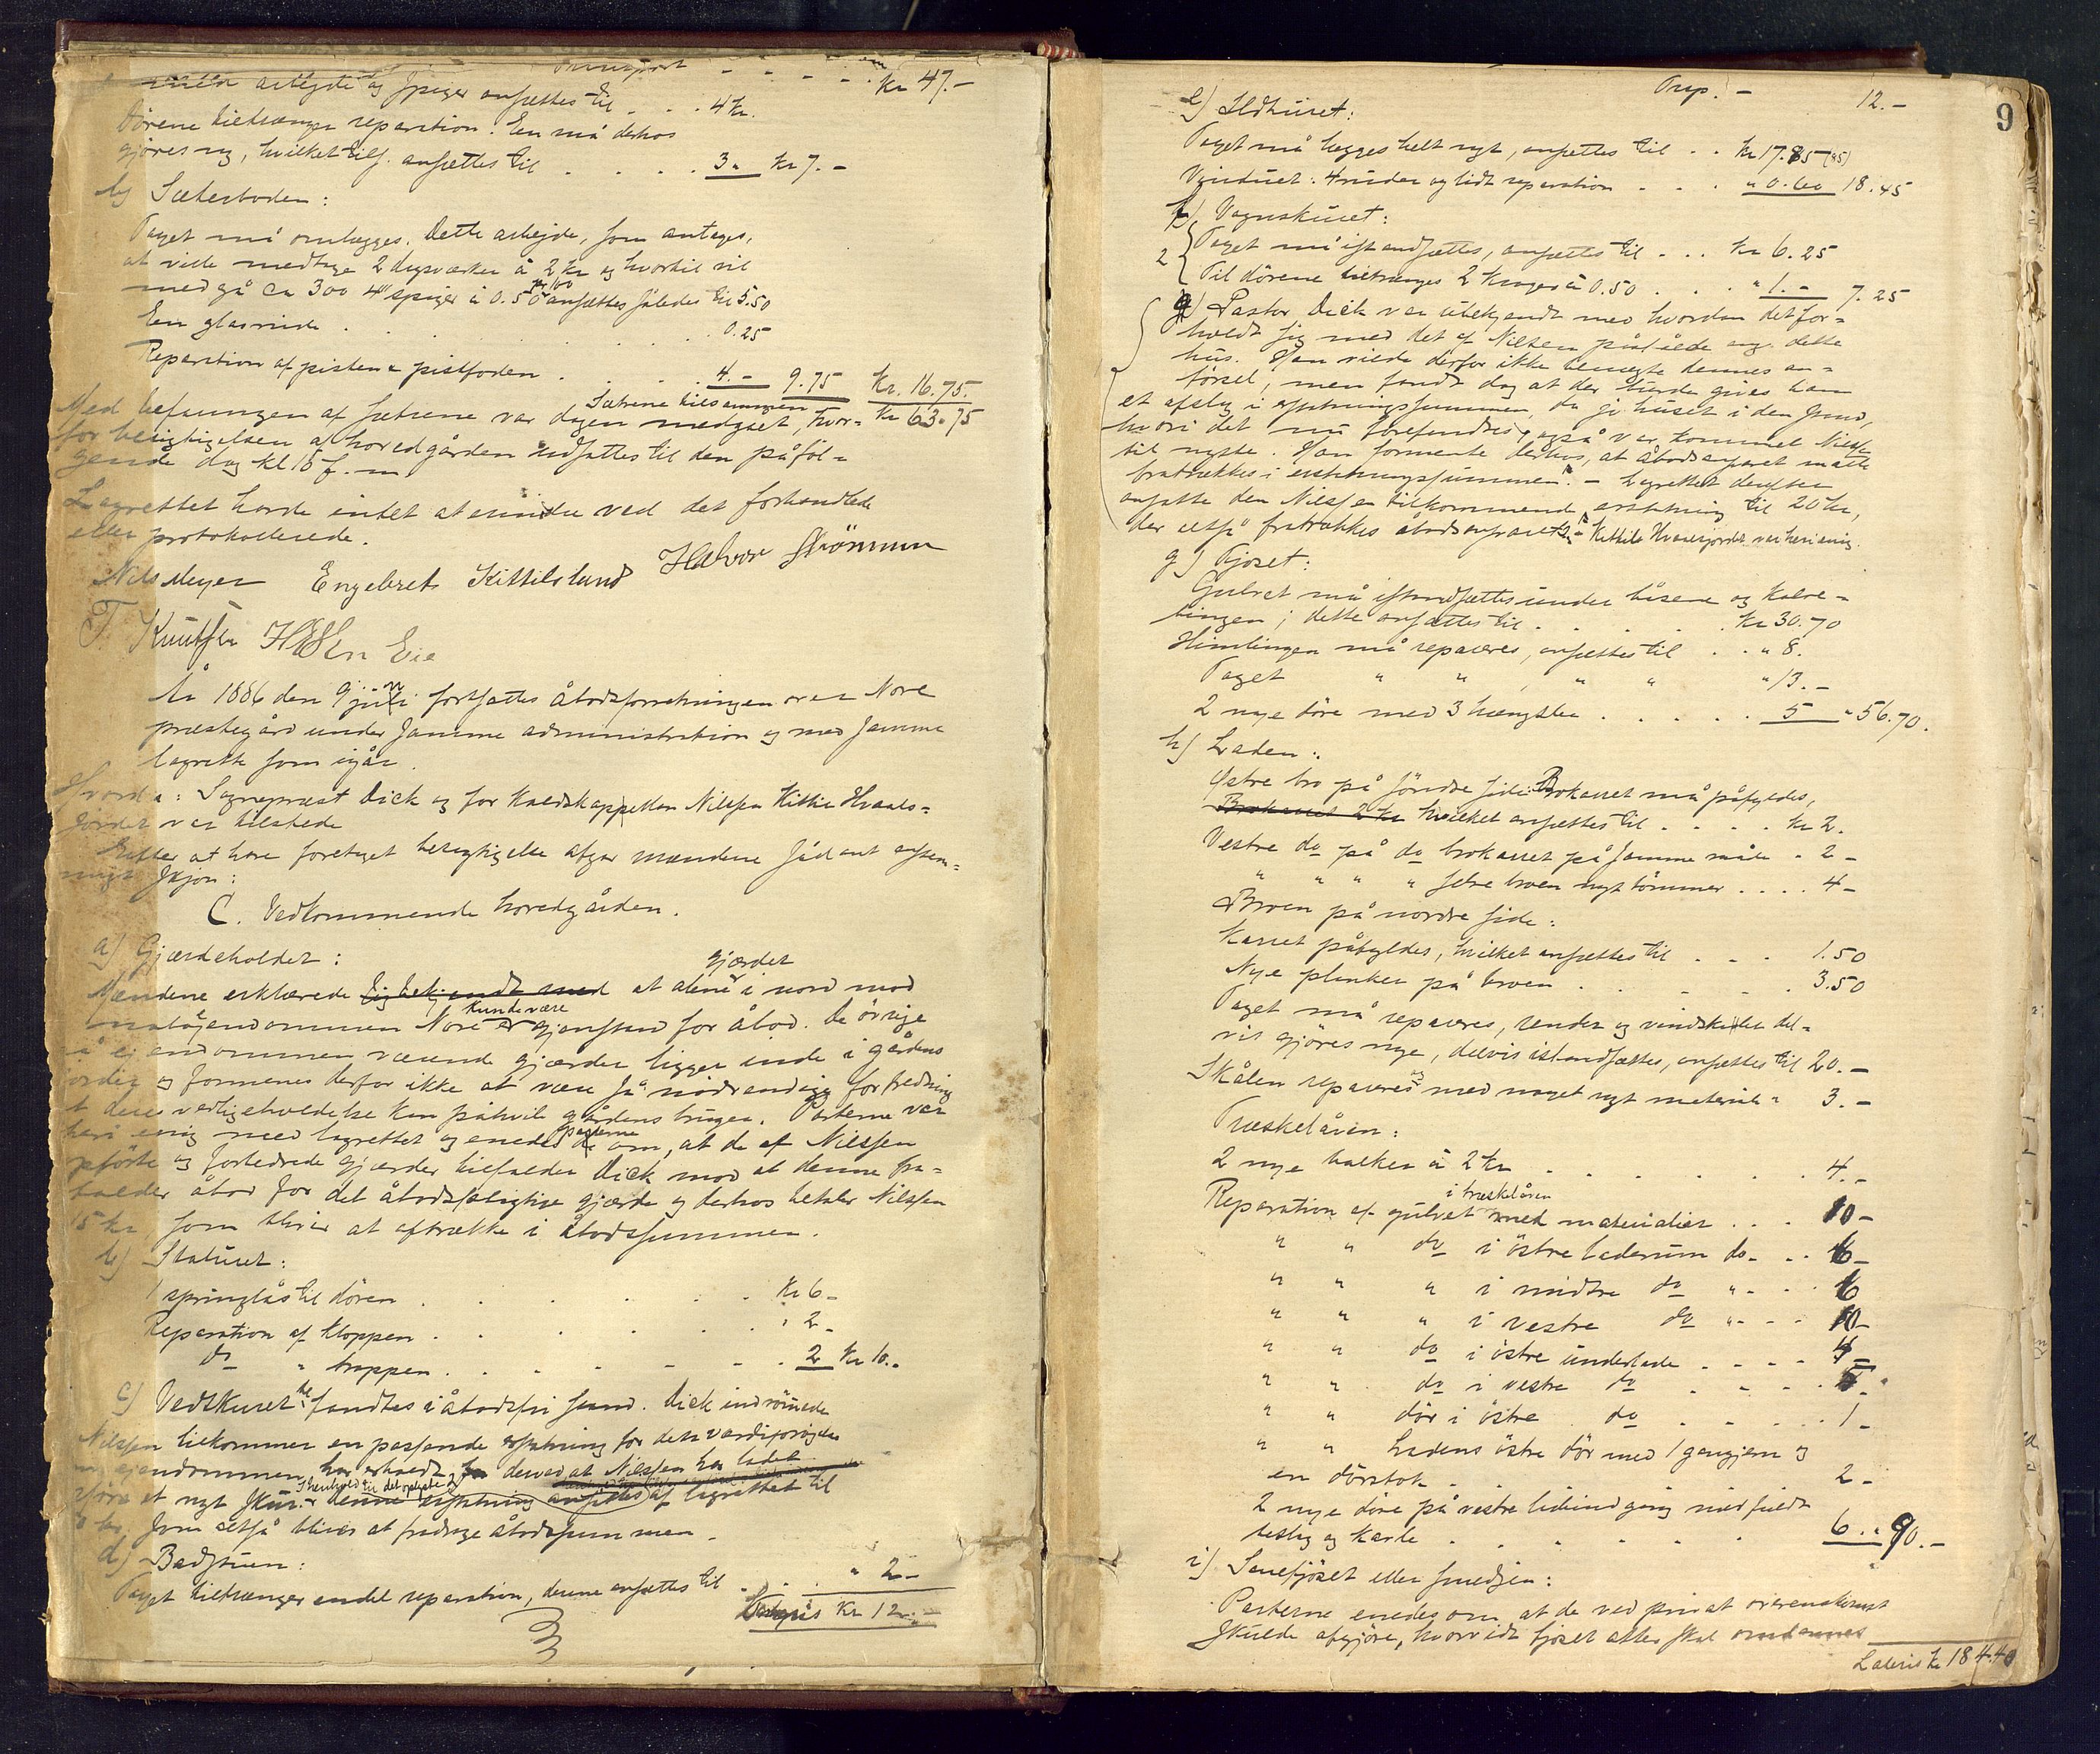 Transport - - - - Kr 47.-
arbejde og spiger ansættes til . . . 4 kr.
Dörene tiltrænger reparation. En må derhos
gjöres ny, hvilket tils. ansættes til . . . . 3 " Kr 7.-
b) Sæterboden:
Taget må omlægges. Dette arbejde, som antages,
at ville medtage 2 dagsværker á 2 kr og hvortil vil
medgå ca 300 4" spiger á 0.50 pr 100 ansættes således til 5.50
En glasrude . . . . . . 0.25
Reparation af pisten & pistfoden . . . . 4.- 9.75 Kr. 16.75.
Sætrene tilsammen Kr 63.75
Med befaringen af sætrene var dagen medgået, hvor-
for besigtigelsen af hovedgården udsattes til den påföl-
gende dag kl f. m.
Lagrettet havde intet at erindre ved det forhandlede
eller protokollerede.
Nils Meyer Engebret Kittilsland Halvor Strömmen
T. Knutsen
År 1886 den 9 juni fortsattes åbodsforretningen over Nore
præstegård under samme administration og med samme
lagrette som igår.
Hvorda: Sogneprest Dick og for Kaldskappellan Nilssen Kittil Hvaals-
jordet var tilstede
Efter at have foretaget besigtigelse afgav mændene sådant ensstem-
migt skjön:
C. Vedkommende hovedgården.
a) Gjærdeholdet:
Mændene erklærede sig bekjendt med at alene gjærdet i nord mod
ejendommen Nore er kunde være gjenstand for åbod. De övrige
på ejendommen værende gjærder ligger inde i gårdens
jorder og formenes derfor ikke at være så nödvendige for fredning
at dere vedligeholdelse kan påhvile gårdens bruger. Parterne var
heri enig med lagrettet og enedes parterne om, at de af Nilssen
opförte og forbedrede gjærder tilfalder Dick mod at denne fra-
falder åbod for det åbodspligtige gjærde og derhos betaler Nilssen
15 kr, som bliver at aftrække i åbodssummen.
b) Staburet:
1 springlås til dören . . . . . . Kr 6-
Reparation af kloppen . . . . . . " 2-
do " trappen . . . . . . 2 Kr 10.-
c) Vedskuret fandtes i åbodsfri stand. Dick indrömmede
Nilssen tilkommer en passende erstatning for den værdiforögelse
ejendommen har erholdt derved at Nilssen har ladet
opföre et nyt skur. I henhold til det oplyste denne erstatning ansættes af lagrettet til
kr, som altså bliver at fradrage åbodssummen.
d) Badstuen:
Taget tiltrænger endel reparation, denne ansættes til . . . " 2-
Kr 12.-
9
Trsp. - 12.-
e) Ildhuset:
Taget må lægges helt nyt, ansættes til . . Kr 17.85 (85)
Vinduet: 4 ruder og lidt reparation . . . " 0.60 18.45
f) Vognskuret:
2 { Taget må istandsættes, ansættes til . . . Kr 6.25
Til dörene tiltrænges 2 kroger á 0.50 . . . " 1.- 7.25
Pastor Dick var ubekjendt med hvordan det for-
holdt sig med det af Nilssen påståede ang. dette
hus. Han vilde derfor ikke benegte dennes an-
försel, men fandt dog at der burde gives ham
et afslag i erstatningssummen, da jo huset i den stand,
hvori det nu forefandtes, også var kommet Nilssen
til nytte. Han formente derhos, at åbodsansvaret måtte
fratrækkes i erstatningssummen. - Lagrettet derefter
ansatte den Nilssen tilkommende erstatning til 20 kr,
der altså fratrækkes åbodsansvaret. - Kittil Hvaalsjordet var heri enig.
g) Fjöset:
Gulvet må istandsættes under båsene og kalve-
bingen; dette ansættes til . . . . . Kr 30.70
Himlingen må repareres, ansættes til . . " 8.
Taget " " , " " " 13.-
2 nye döre med 3 hængsler . . . . . 5 " 56.70.
h) Laden:
Östre bro på söndre side: Brokarret må påfyldes,
Brokarret 2 kr hvilket ansættes til . . . . Kr 2.
Vestre do på do brokarret på samme måde . 2 -
" " " " selve broen nyt tömmer . . . . 4 -
Broen på nordre side:
Karret påfyldes, hvilket ansættes til . . . 1.50
Nye planker på broen . . . . . . 3.50
Taget må repareres, render og vindskeder del-
vis gjöres nye, delvis istandsættes, ansættes til 20.-
Skålen repareres og med noget nyt materiale 3.-
Træskelåven:
2 nye balker á 2 kr . . . . . . 4.-
Reparation af gulvet i træskelåven med materialier . . . 10-
" " do i östre laderum do - . . 6-
" " " i midtre do " - . . 6
" " " i vestre do " - - - 10-
" " do i östre underlade . . . . 4-
" " do i vestre do . . . . 5.
" " dör i östre do . . . . . 1-
" " Ladens östre dör med 1 gangjern og
en dörstok . . . . . 2-
2 nye döre på vestre ladeindgang med fuldt
beslag og karle . . . . . 6." 90.-
i) Sauefjöset eller smedjen:
Parterne enedes om at de ved privat overenskomst
skulde afgjöre, hvorvidt fjöset atter skal omdannes
Lateris Kr 184.40